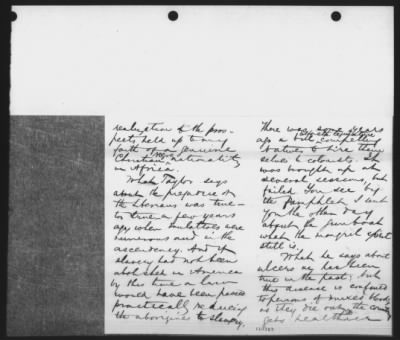 realization to the pros-
pects held up to my
faith of a genuine
Christian Negro nationality
in Africa.
What Taylor says
about the prejudice of
the Liberians was true
true a few years
ago when mulattoes were
numerous and in the
ascendancy. And if
slavery had not been
abolished in America
by this time a law
would have been passed
practically reducing
the aborigines to slavery.
There was some years
ago a bill before the legislature compelling
natives to hire them
selves to colonists. It
was brought up at
several seasons but
failed. You see by
the pamphlet I sent
you the other day
about the gunboat
what the mongrel spirit
still is.
What he says about
ulcers may has been
true in the past, but
this disease is confined
to persons of mixed blood,
as they die out the country
gets healthier